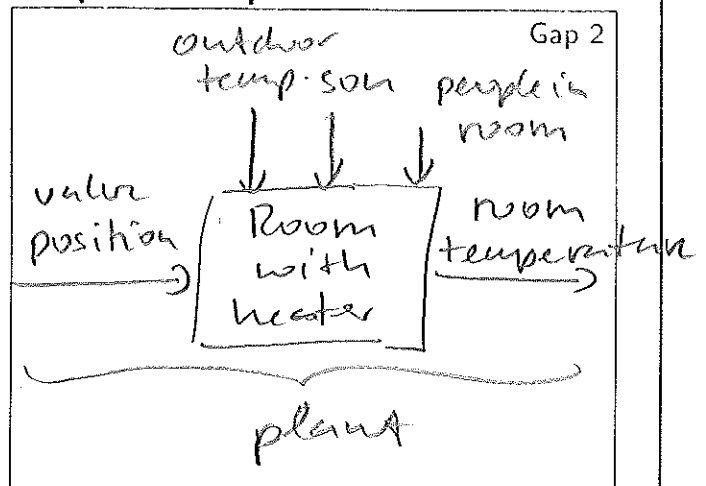 Gap 2
outdoor
temp. sun people in
room
valve
position
Room
with
heater
room
temperature
plant